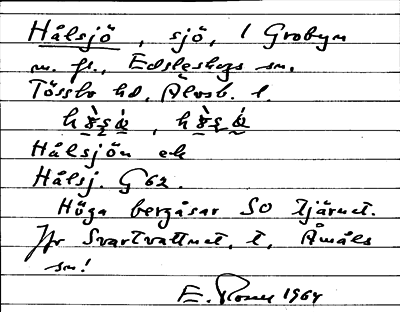 Hålsjö, sjö, i Grobyn
m. fl., Edsleskogs sn.
Tössbo hd, Älvsb. l.
Hålsjön ek
Hålsj. G 62.
Höga bergåsar SO tjärnet.
Jfr Svartvattnet, t, Åmåls
sn!
E. 1964